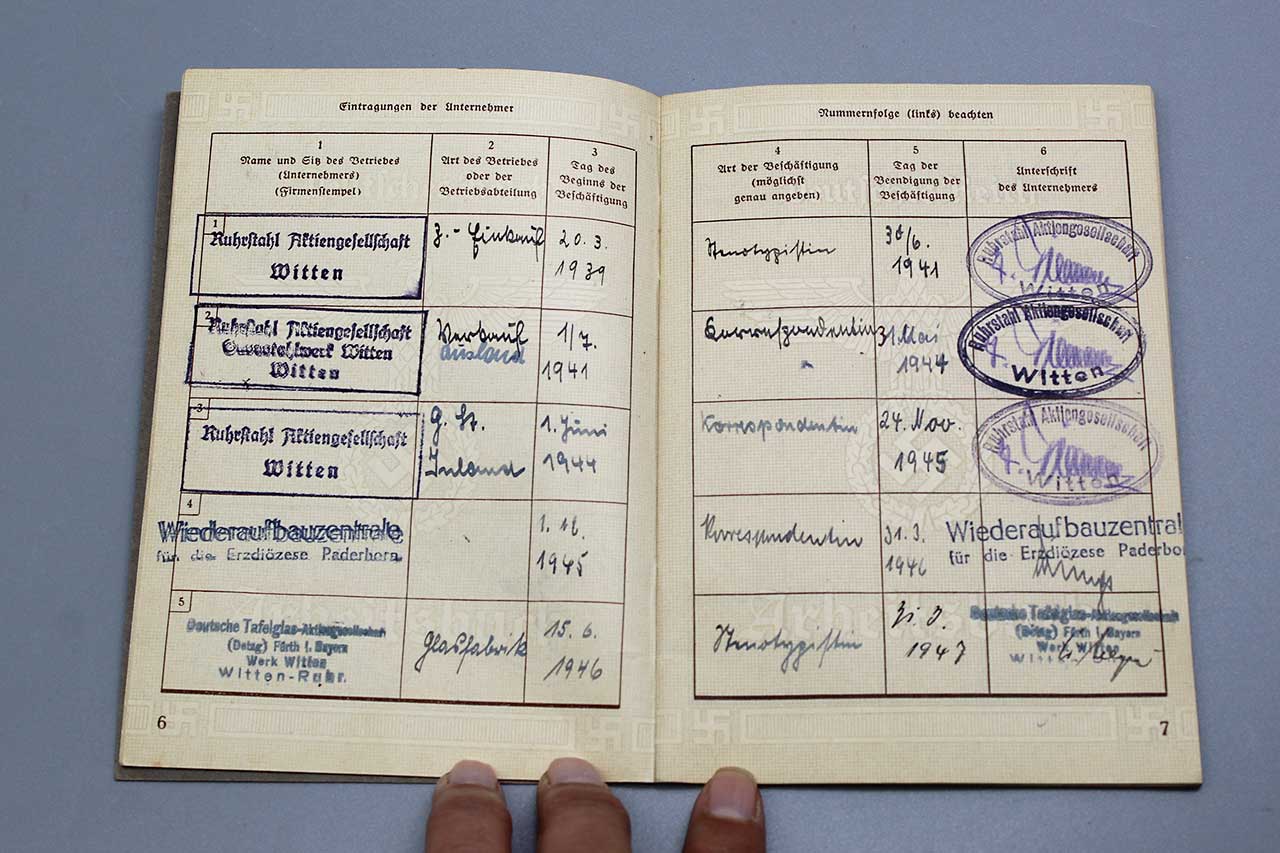 Eintragungen der Unternehmer
1
Name und Sitz des Betriebes
(Unternehmers)
(Firmenstempel)
2
Art des Betriebes
oder der
Betriebsabteilung
3
Tag des
Beginns der
Beschäftigung
1
Ruhrstahl Aktiengesellschaft
Witten
Z.-Einkauf
20. 3.
1939
2
Ruhrstahl Aktiengesellschaft
Gussstahlwerk Witten
Witten
Verkauf
Ausland
1/7.
1941
3
Ruhrstahl Aktiengesellschaft
Witten
G. St.
Inland
1. Juni
1944
4
Wiederaufbauzentrale
für die Erzdiözese Paderborn
1. 12.
1945
5
Deutsche Tafelglas-Aktiengesellschaft
(Detag) Fürth i. Bayern
Werk Witten
Witten-Ruhr.
Glasfabrik
15. 6.
1946
6
Nummernfolge (links) beachten
4
Art der Beschäftigung
(möglichst
genau angeben)
5
Tag der
Beendigung der
Beschäftigung
6
Unterschrift
des Unternehmers
Stenotypistin
30/6.
1941
Ruhrstahl Aktiengesellschaft
Witten
Korrespondentin
31. Mai
1944
Ruhrstahl Aktiengesellschaft
Witten
Korrespondentin
24. Nov.
1945
Ruhrstahl Aktiengesellschaft
Witten
Korrespondentin
31. 3.
1946
Wiederaufbauzentral
für die Erzdiözese Paderbo
Stenotypistin
31. 3.
1947
Deutsche Tafelglas-Aktiengesellschaft
(Detag) Fürth i. Bayern
Werk Witten
Arbeitsbuch
7